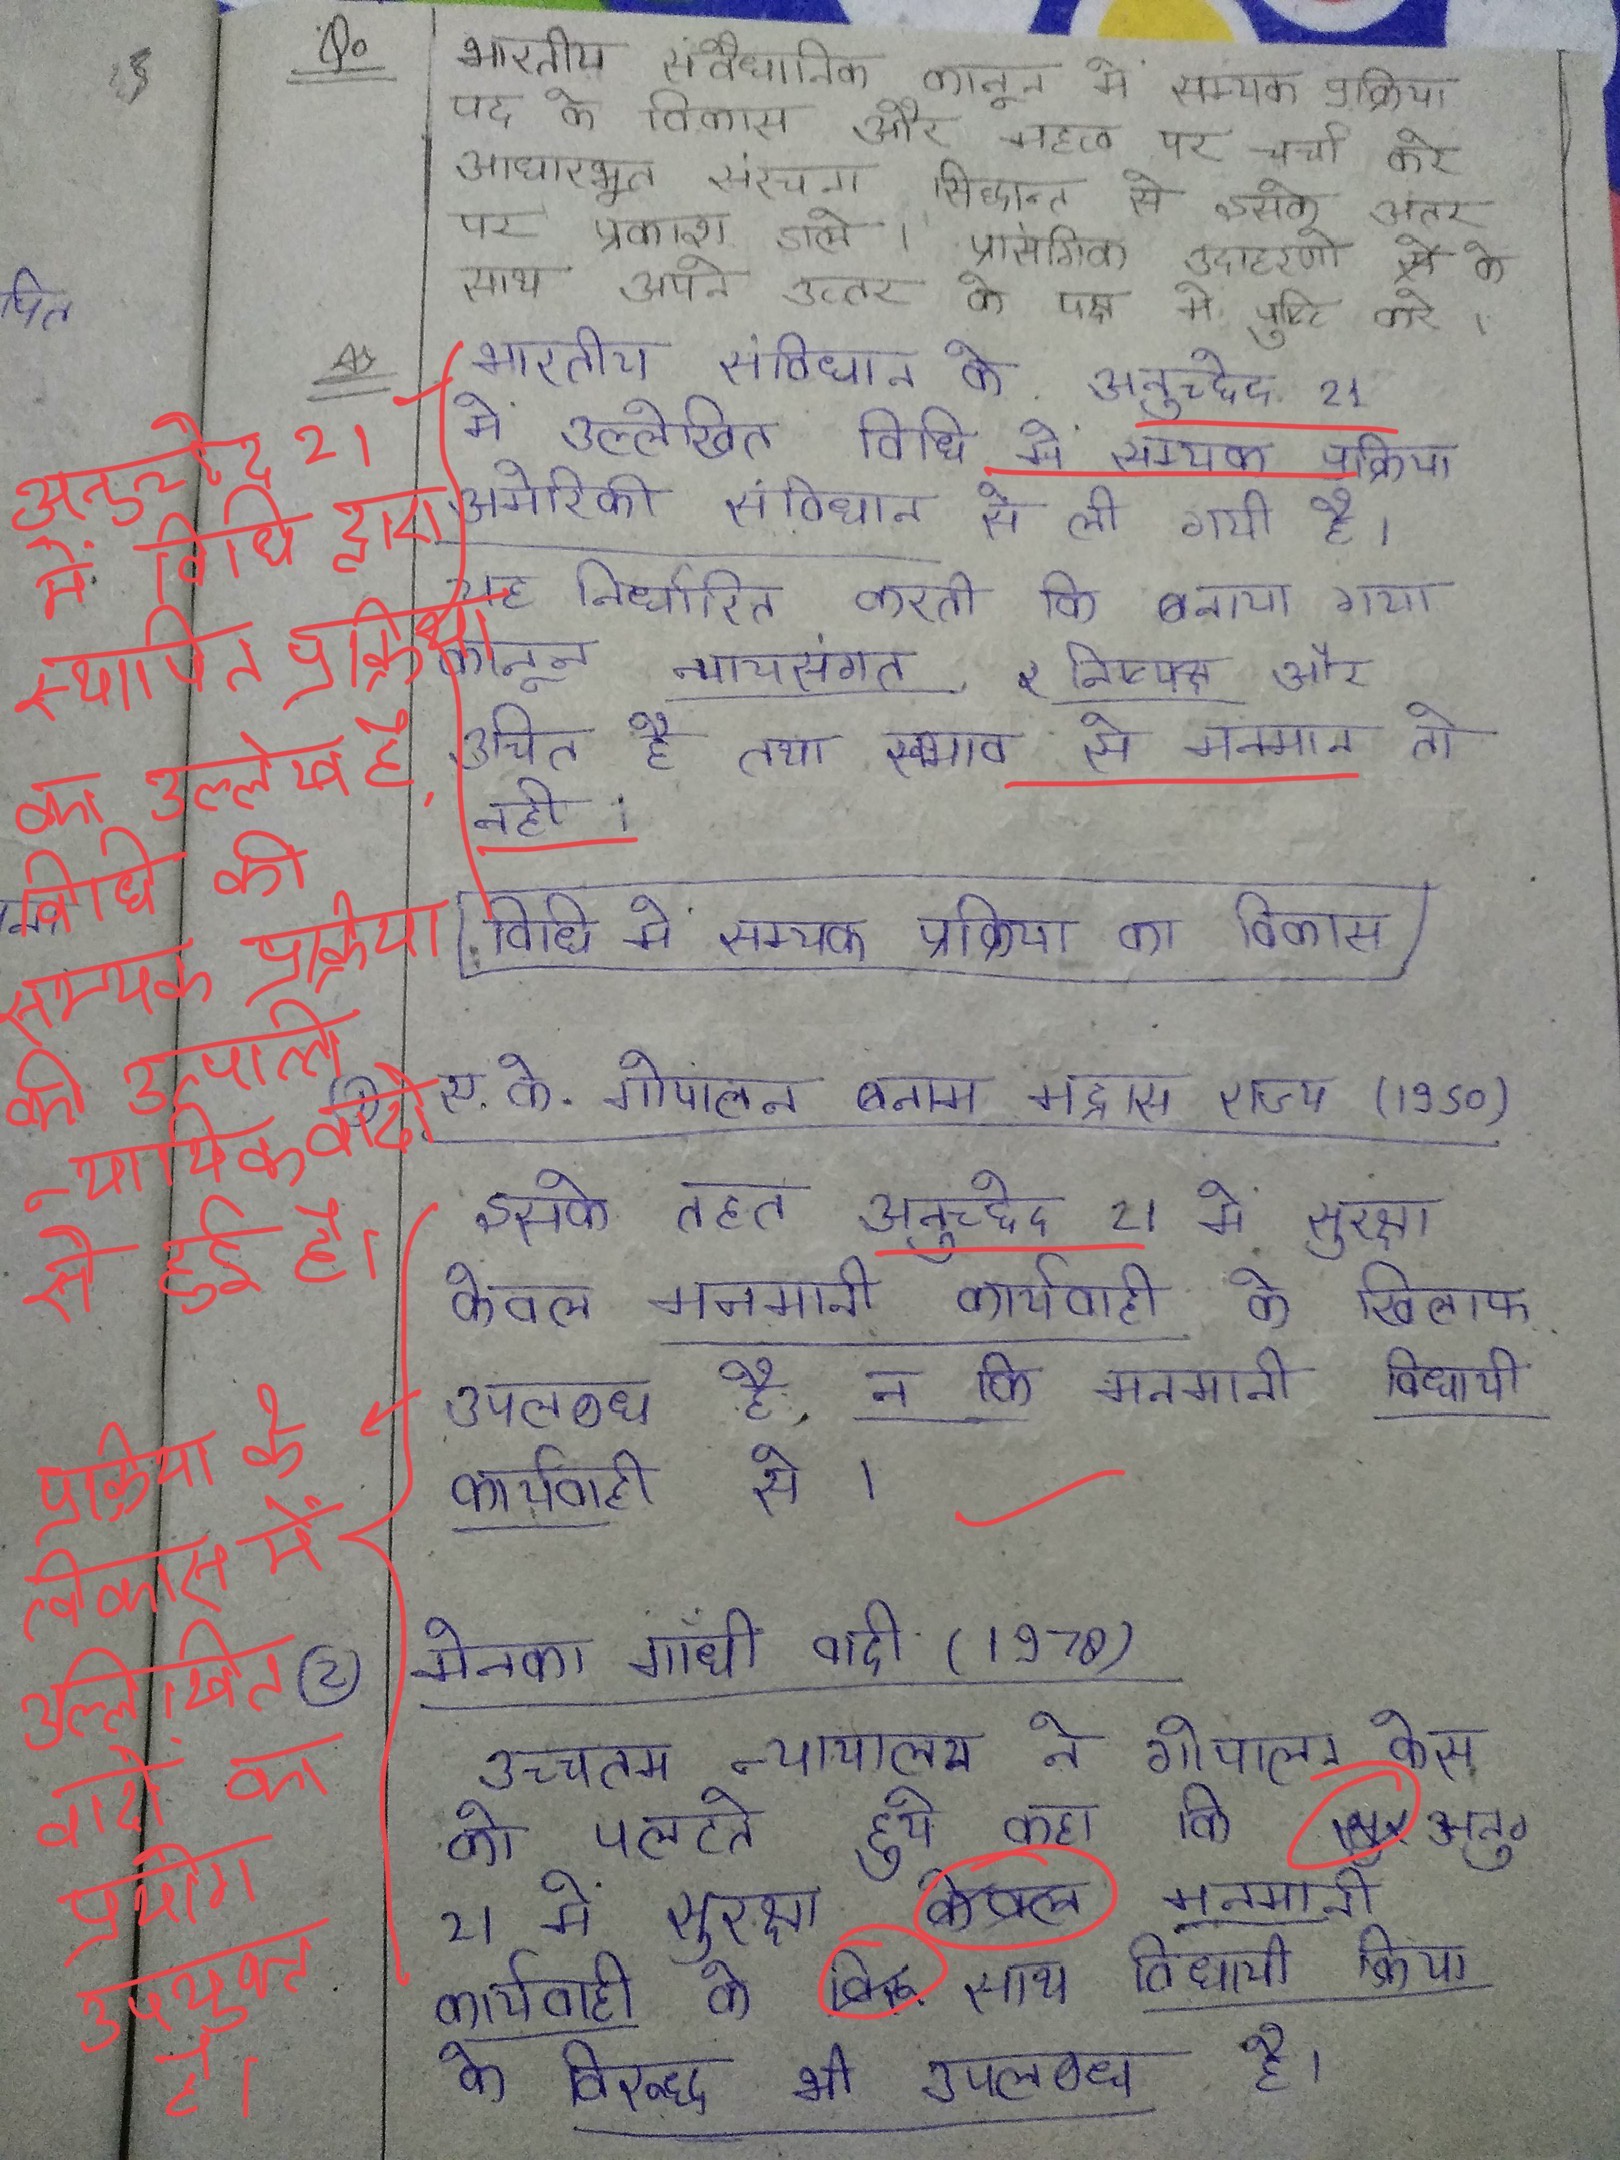 Q॰
भारतीय संवैधानिक कानून में सम्यक प्रक्रिया
पद के विकास और महत्व पर चर्चा करे
आधारभूत संरचना सिद्धान्त से इसके अंतर
पर प्रकाश डाले । प्रासंगिक उदाहरणो के
साथ अपने उत्तर के पक्ष में पुष्टि करे ।
भारतीय संविधान के अनुच्छेद 21
में उल्लेखित विधि में सम्यक प्रक्रिया
अमेरिकी संविधान से ली गयी है ।
यह निर्धारित करती कि बनाया गया
कानून न्यायसंगत, निष्पक्ष और
उचित है तथा स्वभाव से मनमान तो
नही ।
विधि में सम्यक प्रक्रिया का विकास
ए. के. गोपालन बनाम मद्रास राज्य (1950)
इसके तहत अनुच्छेद 21 में सुरक्षा
केवल मनमानी कार्यवाही के खिलाफ
उपलब्ध है, न कि मनमानी विधायी
कार्यवाही से ।
(2) मेनका गाँधी वादी (1978)
उच्चतम न्यायालय ने गोपालन केस
को पलटते हुये कहा कि अनु॰
21 में सुरक्षा केवल मनमानी
कार्यवाही के साथ विधायी क्रिया
के विरुद्ध भी उपलब्ध है ।
अनुच्छेद 21
में विधि द्वारा
स्थापित प्रक्रिया
का उल्लेख है,
विधि की
सम्यक प्रक्रिया
की उत्पत्ति
न्यायिक वादों
से हुई है ।
प्रक्रिया के
विकास में
उल्लिखित
वादों का
प्रयोग
उपयुक्त
है ।
पित